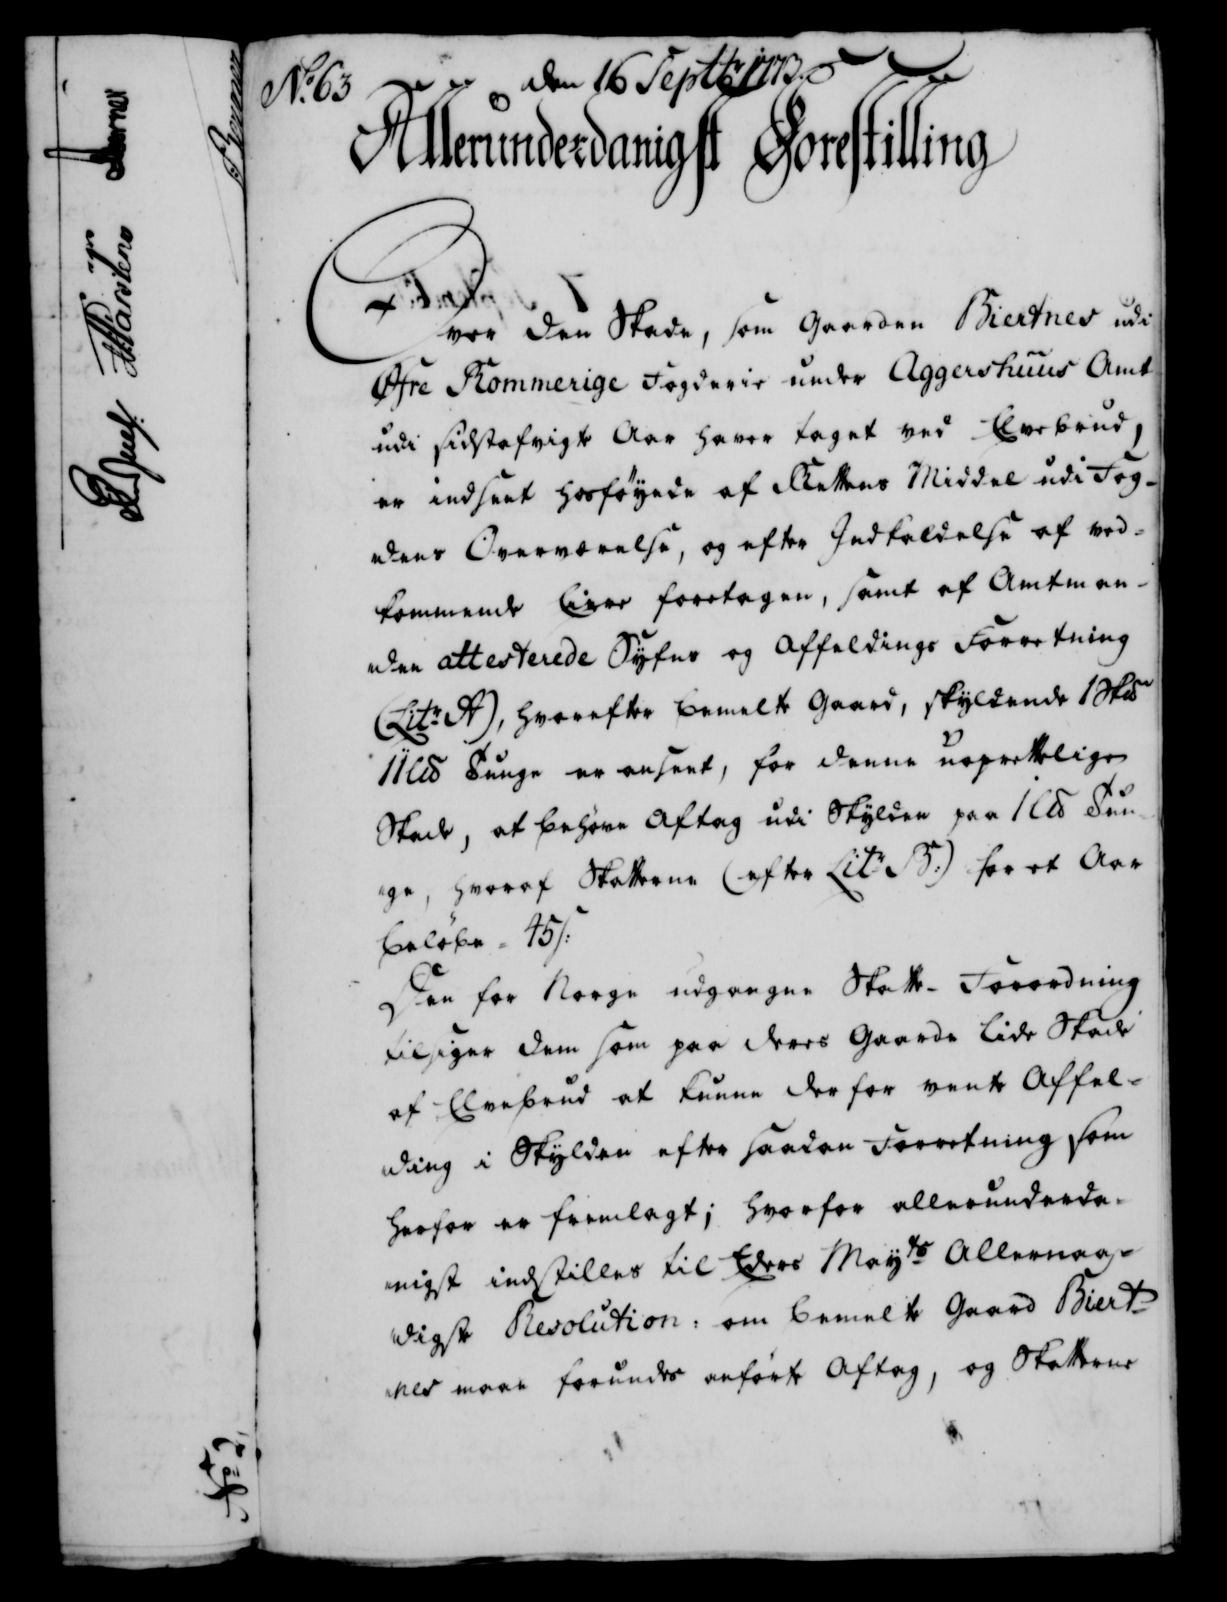 No. 63
den 16 Septbr 1773.
Allerunderdanigst Forestilling
Over den Skade, som Gaarden Biertnes udi
Øfre Rommerige Fogderie under Aggershuus Amt
udi sidstafvigte Aar haver taget ved Elvebrud,
er indsent hosføyede af Rettens Middel udi Fog-
dens Overværelse, og efter Indkaldelse af ved-
kommende Eiere foretagen, samt af Amtman-
den attesterede Syfns og Affeldings Forretning
(Litr. A), hvorefter bemelte Gaard, skyldende 1 Skd
11 Lb Tunge er anseet, for denne uoprettelige
Skade, at behøve Aftag udi Skylden paa 1 Lb Tun-
ge, hvoraf Skatterne (efter Litr. B.) for et Aar
beløbe - 45 s:
Den for Norge udgangne Skatte-Forordning
tilsiger dem som paa deres Gaarde lide Skade
af Elvebrud at kunne derfor vente Affel-
ding i Skylden efter saadan Forretning som
herfor er fremlagt; hvorfor allerunderda-
nigst indstilles til Eders Mayts Allernaa-
digste Resolution: om bemelte Gaard Biert-
nes maae forundes anførte Aftag, og Skatterne
No. 2